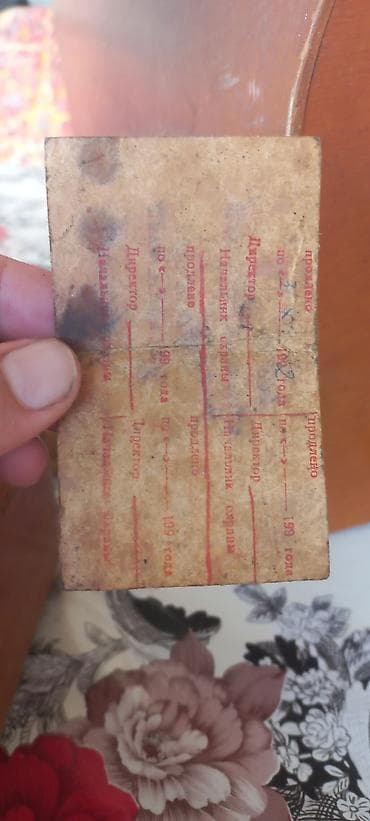 продлено
по « » 199 года
Директор
Начальник охраны
продлено
по « » 199 года
Директор
Начальник охраны
продлено
по « » 199 года
Директор
Начальник охраны
продлено
по « » 199 года
Директор
Начальник охраны